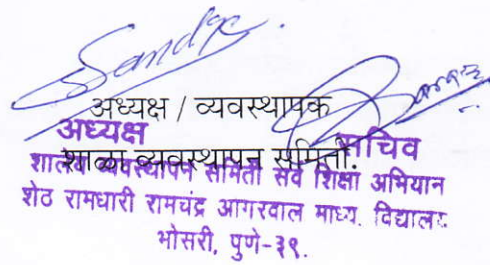 Sandip
अध्यक्ष / व्यवस्थापक
अध्यक्ष सचिव
शाळा व्यवस्थापन समिती.
शालेय व्यवस्थापन समिती सर्व शिक्षा अभियान
शेठ रामधारी रामचंद्र आगरवाल माध्य. विद्यालय
भोसरी, पुणे-३९.